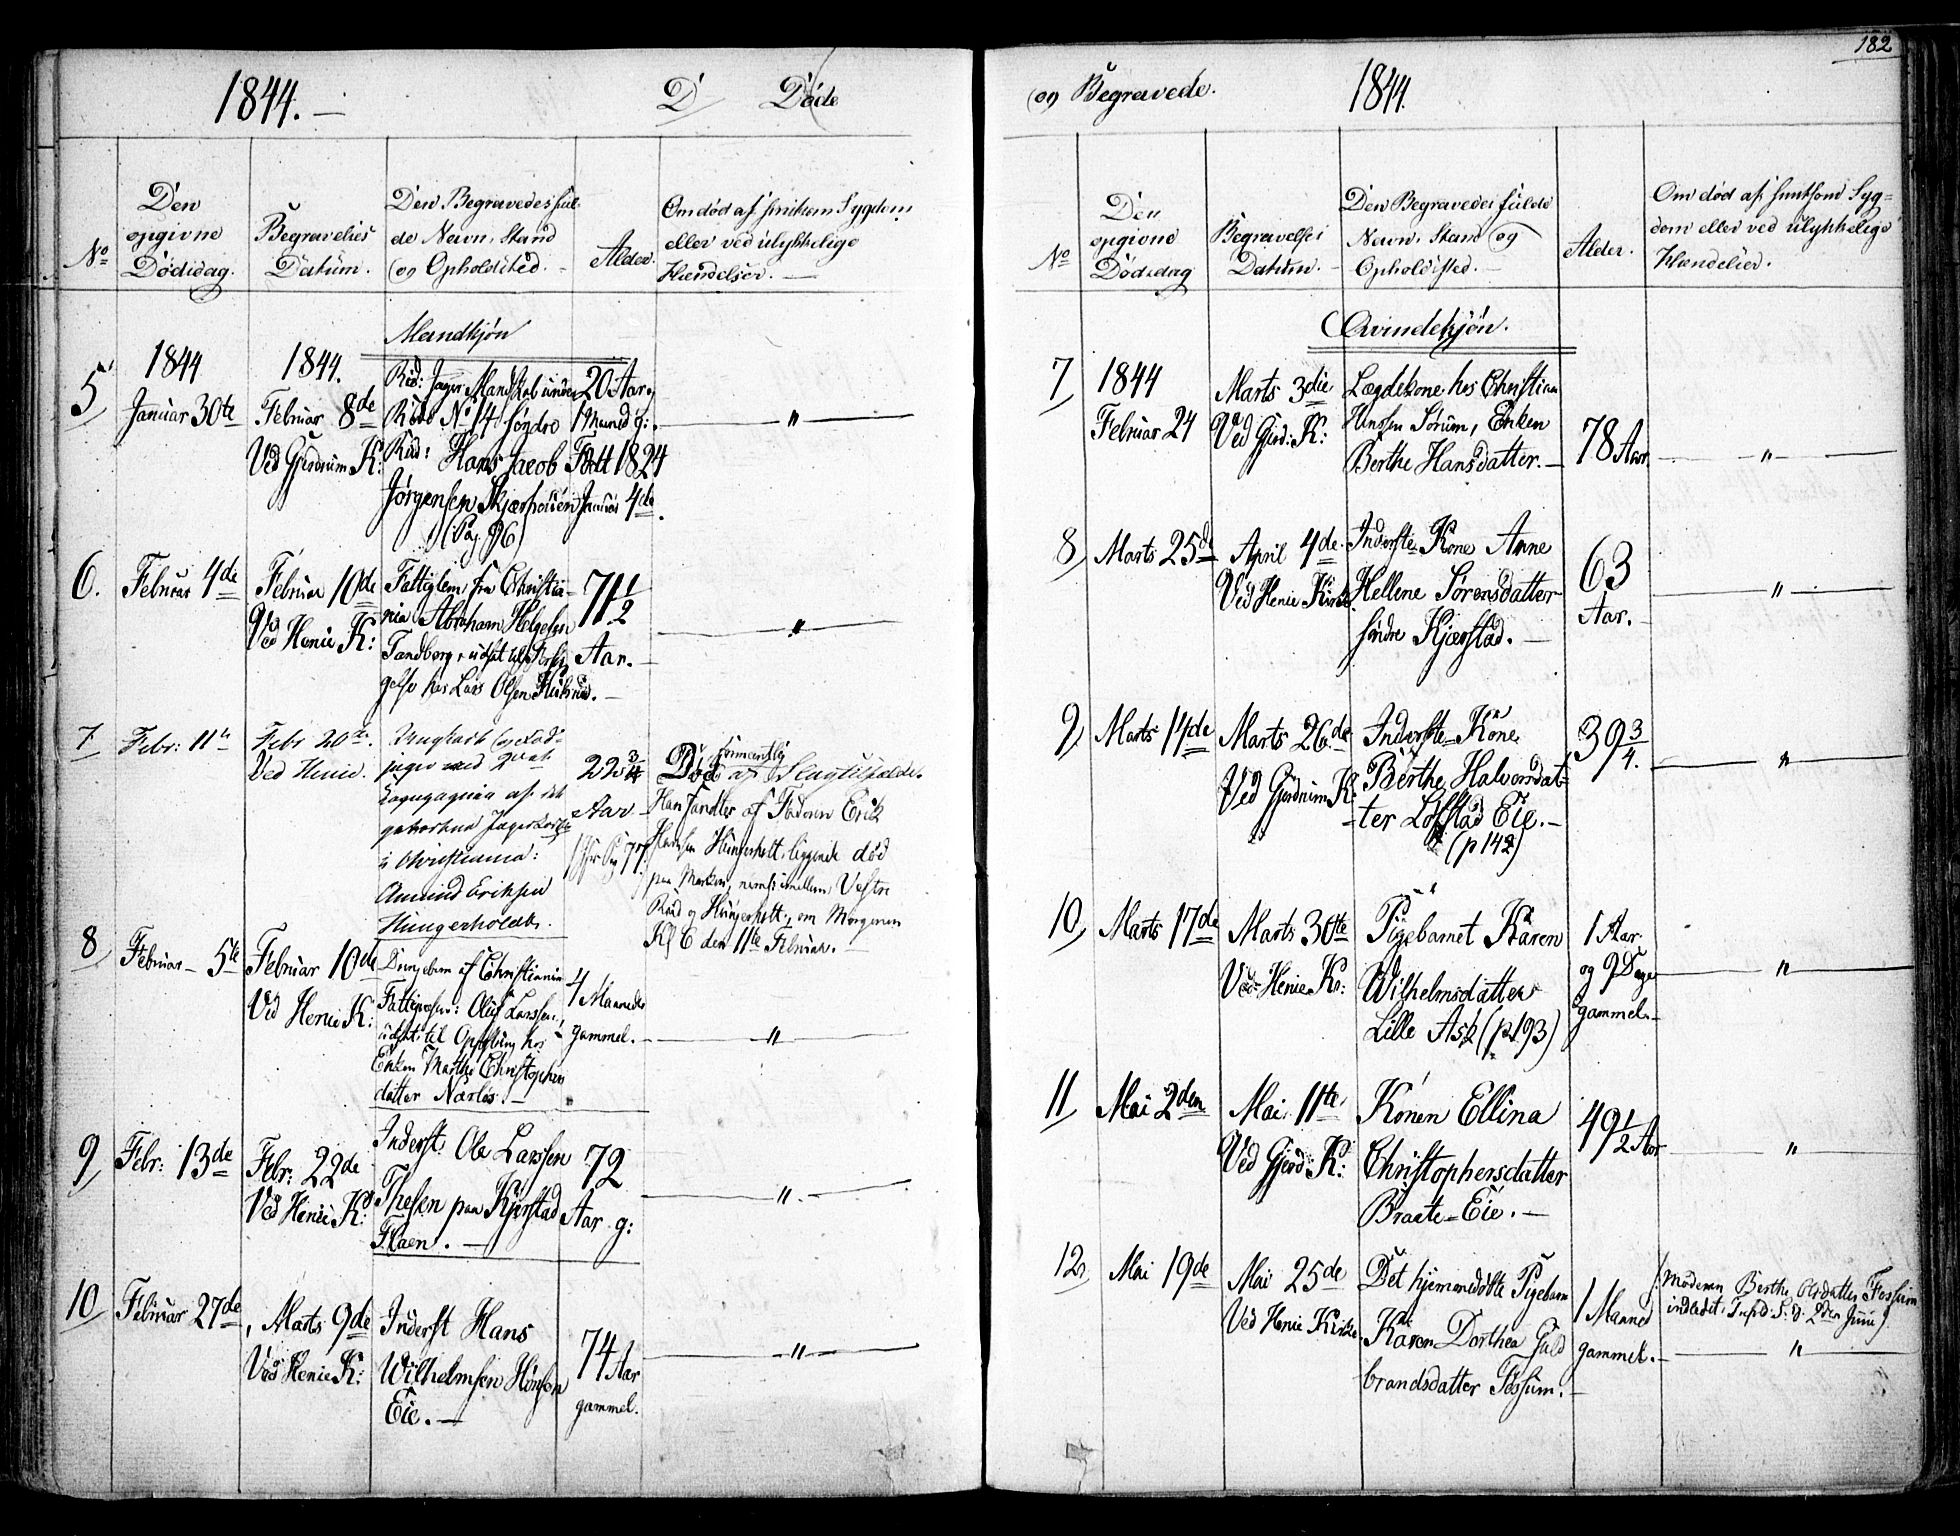 1844. —
D Døde
No
Den
opgivne
Dødsdag.
Begravelses
Datum.
Den Begravedes ful-
de Navn, Stand
og Opholdsted.
Alder.
Om død af smitsom Sygdom
eller ved ulykkelige
Hændelser. —
Mandkjøn
5
1844
Januar 30te
1844.
Februar 8de
Ved Gjerdrum K:
No 14 søndre
Ruud: Hans Jacob
Jørgensen
(Pag. 96)
20 Aar
1 Maaned g:.
Født 1824
Januar 4de
"
6.
Februar 4de
Februar 10de
Ved Henie K:
Fattiglem fra Christia-
nia Abraham Helgesen
Tandberg, udsat til
hos Lars Olsen
71 1/2
Aar.
"
7
Febr: 11te
Febr 20de.
Ved Henie.
jæger ved 2det
i Christiania:
Amund Eriksen
Hungerholdt.
22 3/4
Aar
Død formentlig af Slagtilfælde.
Han fandtes af Faderen Erik
Hungerholt, liggende død
paa Marken, imellem Vestre
Ruud og Hungerholt, om Morgenen
Kl 6 den 11te Februar.
8
Februar 5te
Februar 10de
Ved Henie K:
Drengebarn af Christiania
Oluf Larssen,
udsat til hos
Enken Marthe Christophers
datter
4 Maaneder
gammel.
"
9
Febr: 13de
Febr: 22de
Ved Henie K:
Inderst Ole Larssen
paa Kjerstad
72
Aar g:
"
10
Februar 27de
Marts 9de
Ved Henie K:
Inderst Hans
Wilhelmsen Hønsen
Eie. —
74 Aar
gammel.
"
182
og Begravede.
1844.
No
Den
opgivne
Dødsdag
Begravelses
Datum. —
Den Begravedes fulde
Navn, Stand og
Opholdsted. —
Alder.
Om død af smitsom Syg-
dom eller ved ulykkelige
Hændelser.
Qvindekjøn.
7
1844
Februar 24
Marts 3die
Ved Gjerd: K:
Lægdekone hos Christian
Hansen Sørum, Enken
Berthe Hansdatter. —
78 Aar
"
8
Marts 25de
April 4de
Ved Henie Kirke
Inderste Kone Anne
Hellene Sørensdatter
søndre Kjærstad. —
63
Aar. —
"
9
Marts 14de
Marts 26de
Ved Gjerdrum K:
Inderste-Kone
Berthe Halvorsdat-
ter Løfstad Eie. —
(p 142)
39 3/4.
"
10
Marts 17de
Marts 30te
Ved Henie K:
Pigebarnet Karen
Wilhelmsdatter
Lille Ask (p. 193)
1 Aar
og 9 Dage
gammel. —
"
11
Mai 2den
Mai 11te
Ved Gjerd: K:
Konen Ellina
Christophersdatter
Braate-Eie. —
49 1/2 Aar
"
12
Mai 19de
Mai 25de
Ved Henie Kirke
Det hjemmedøbte Pigebarn
Karen Dorthea Guld
brandsdatter Fossum. —
1 Maaned
gammel. —
Moderen Berthe Olsdatter Fossum
indledet 2den Juni
"